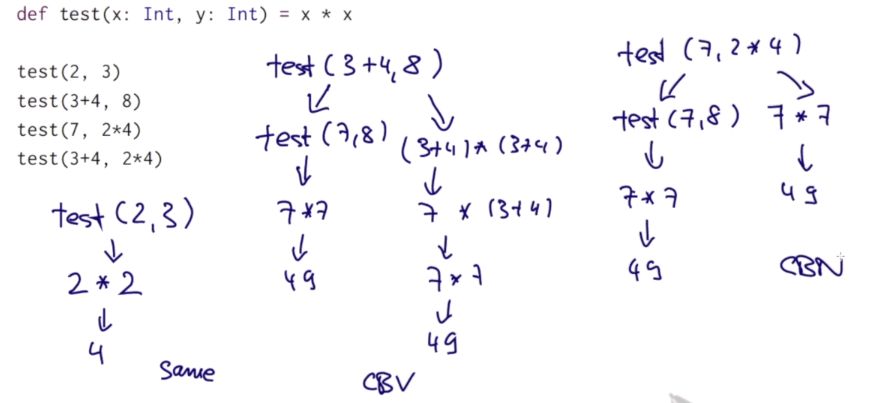 def test(x: Int, y: Int) = x * x
test(2, 3)
test(3+4, 8)
test(7, 2*4)
test(3+4, 2*4)
test (2,3)
↓
2 * 2
↓
4
same
test (3+4, 8)
↙ ↘
test (7,8) (3+4) * (3+4)
↓ ↓
7*7 7 * (3+4)
↓ ↓
49 7 * 7
↓
49
CBV
test (7, 2*4)
↙ ↘
test (7,8) 7 * 7
↓ ↓
7 * 7 49
↓
49
CBN